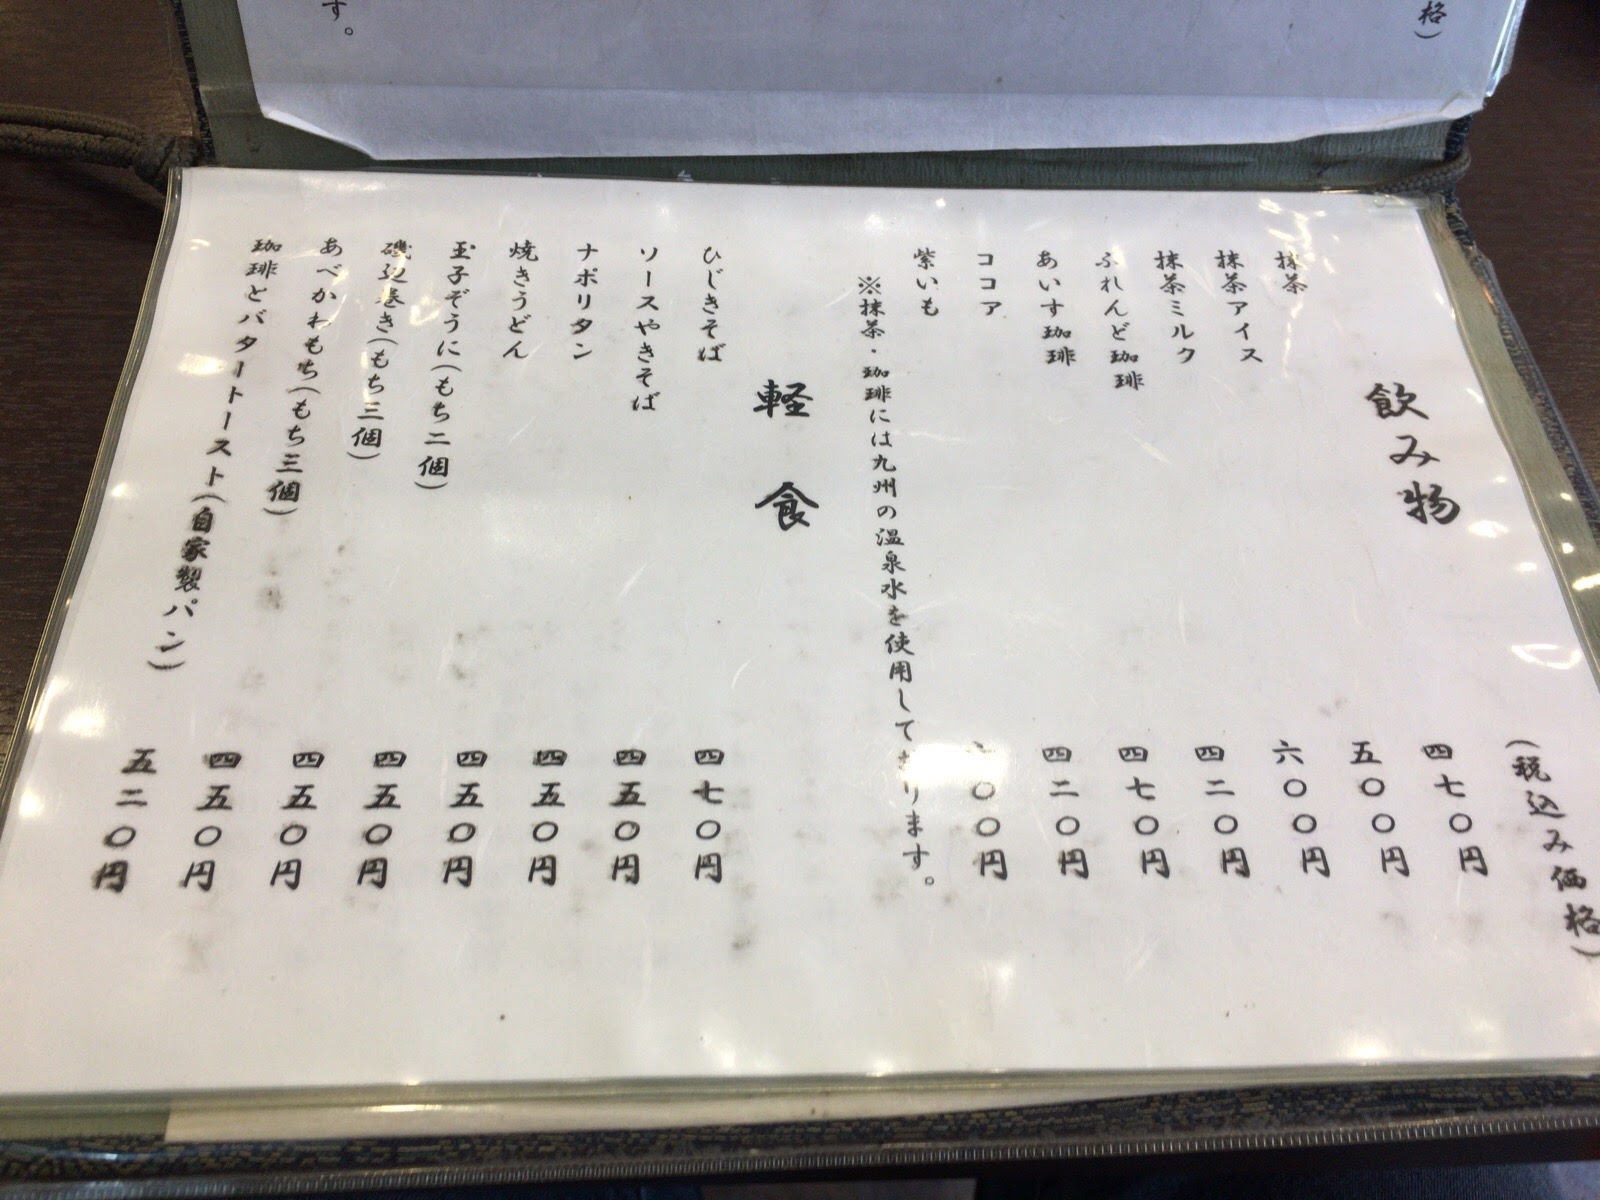 格）
す。
（税込み価格）
飲み物
抹茶 四七〇円
抹茶アイス 五〇〇円
抹茶ミルク 六〇〇円
ふれんど珈琲 四二〇円
あいす珈琲 四七〇円
ココア 四二〇円
紫いも 〇〇円
※抹茶・珈琲には九州の温泉水を使用しております。
軽食
ひじきそば 四七〇円
ソースやきそば 四五〇円
ナポリタン 四五〇円
焼きうどん 四五〇円
玉子ぞうに（もち二個） 四五〇円
磯辺巻き（もち三個） 四五〇円
あべかわもち（もち三個） 四五〇円
珈琲とバタートースト（自家製パン） 五二〇円